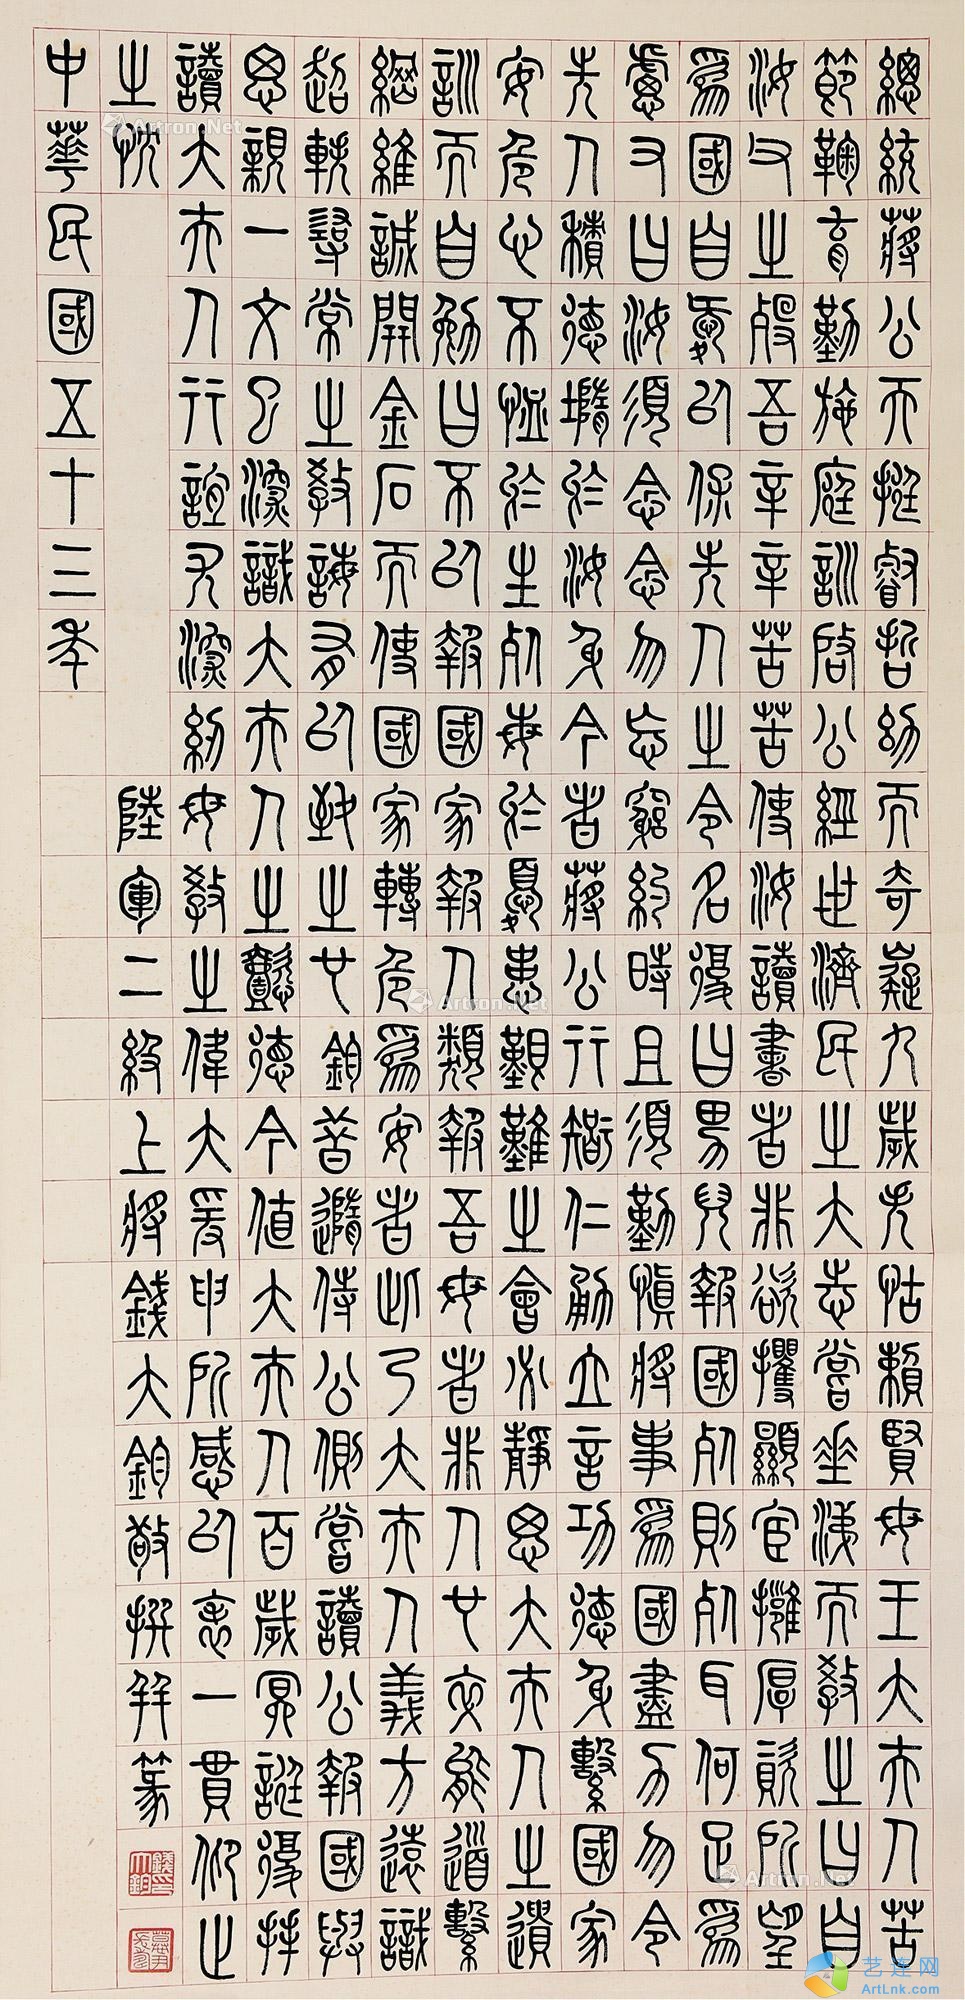 總統蔣公天挺睿哲幼而奇嶷九歲失怙賴賢母王大夫人苦
節鞠育勤施庭訓啓公經世濟民之大志嘗垂涕而教之曰自
汝父之歿吾辛辛苦苦使汝讀書者非欲攫顯宦擁厚貲所望
為國自愛以保先人之令名復曰男兒報國死則死耳何足為
慮又曰汝須念念勿忘窮約時且須勤慎將事為國盡力勿令
先人積德墮於汝身今者蔣公行智仁勇立言功德身繫國家
安危心不恇於生死每於憂患艱難之會必靜思大夫人之遺
訓而自勉曰不以報國家報人類報吾母者非人也故能道繫
綱維誠開金石而使國家轉危為安者此乃大夫人義方遠識
超軼尋常之教誨有以致之也鈞昔隨侍公側嘗讀公報國與
思親一文已深識大夫人之懿德今值大夫人百歲冥誕復持
讀大夫人行誼尤深紉母教之偉大爰申所感以志一貫仰止
之忱 陸軍二級上將錢大鈞敬撰並篆
中華民國五十三年
Artron.Net
Artron.Net
Artron.Net
艺连网
ArtLnk.com